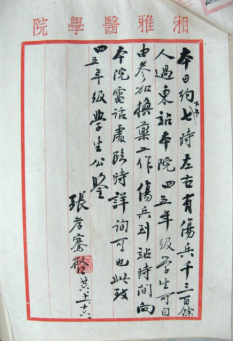 湘雅醫學院
本日約七時左右有傷兵千三百餘
人過東站本院四五年級學生可自
由參加換藥工作傷兵到站時間向
本院電話處臨時詳詢可也此致
四五年級學生公鑒
張孝騫啓